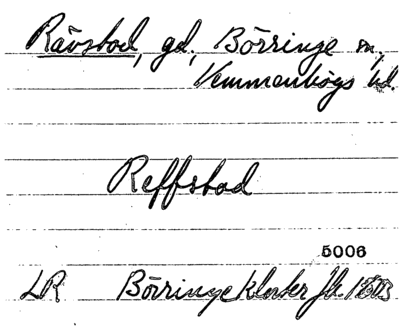 Rävstad, gd, Börringe sn,
Vemmenhögs hd.
Reffstad
5006
LR Börringekloster Jb 1603